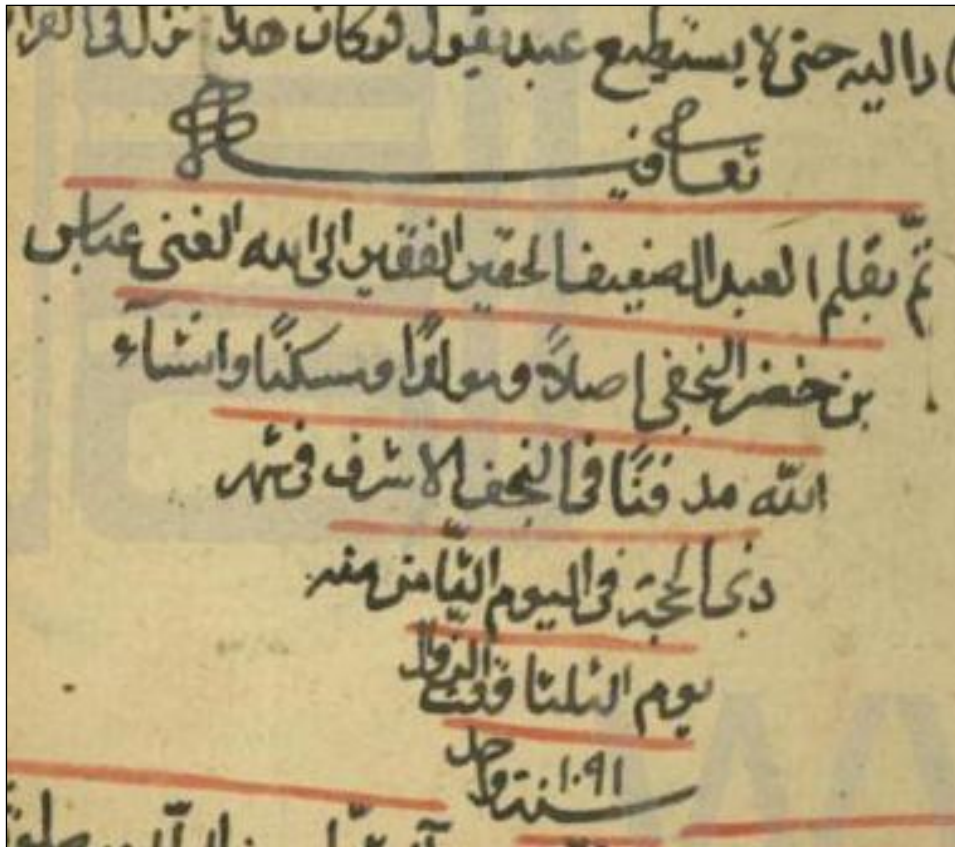 دا اليه حتى لا يستطيع عبد يقول لو كان هذا نزل في القرا
تعافيه
تمّ بقلم العبد الضعيف الحقير الفقير الى الله الغني عباس
بن خضر النجفي اصلاً ومولدًا ومسكنًا وانشآء
الله مدفنًا في النجف الاشرف في شهر
ذي الحجة في اليوم الثامن منه
يوم الثلثا وقت الزوال
سنة ١٠٩١ واحد